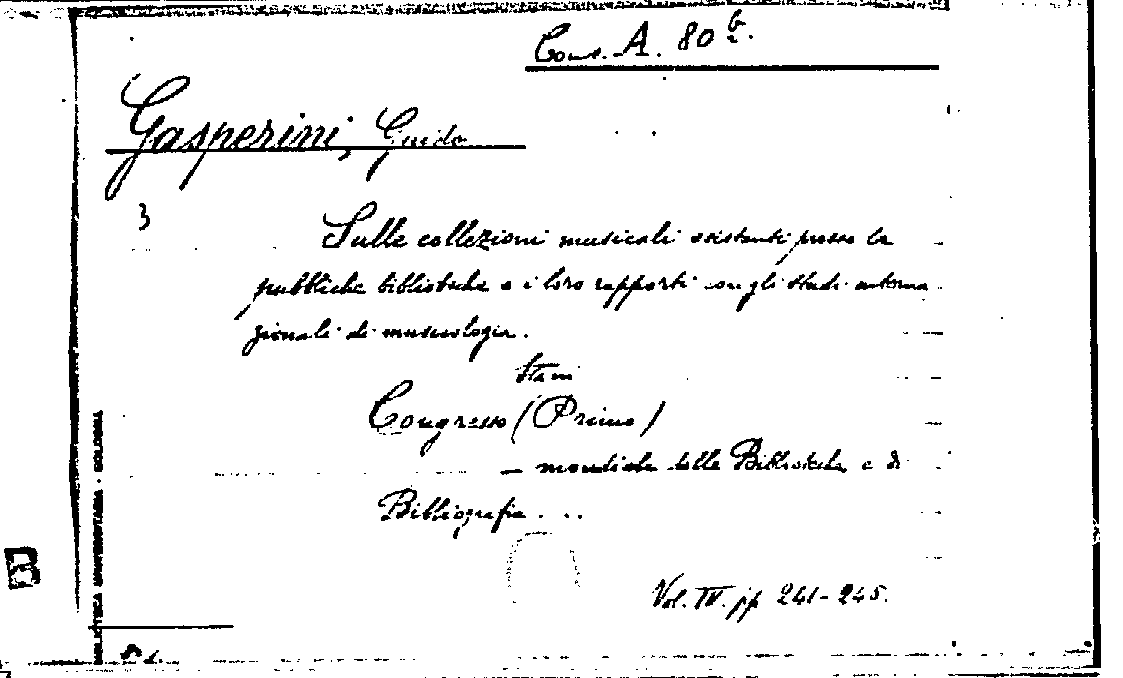 Cons. A. 80
Gasperini, Guido
3
Sulle collezioni musicali esistenti presso le
pubbliche biblioteche e i loro rapporti con gli studi interna
zionali di museologia.
Congresso (Primo)
– mondiale delle Biblioteche e di
Bibliografia . . .
Vol. IV. pp 241-245.
BIBLIOTECA UNIVERSITARIA - BOLOGNA